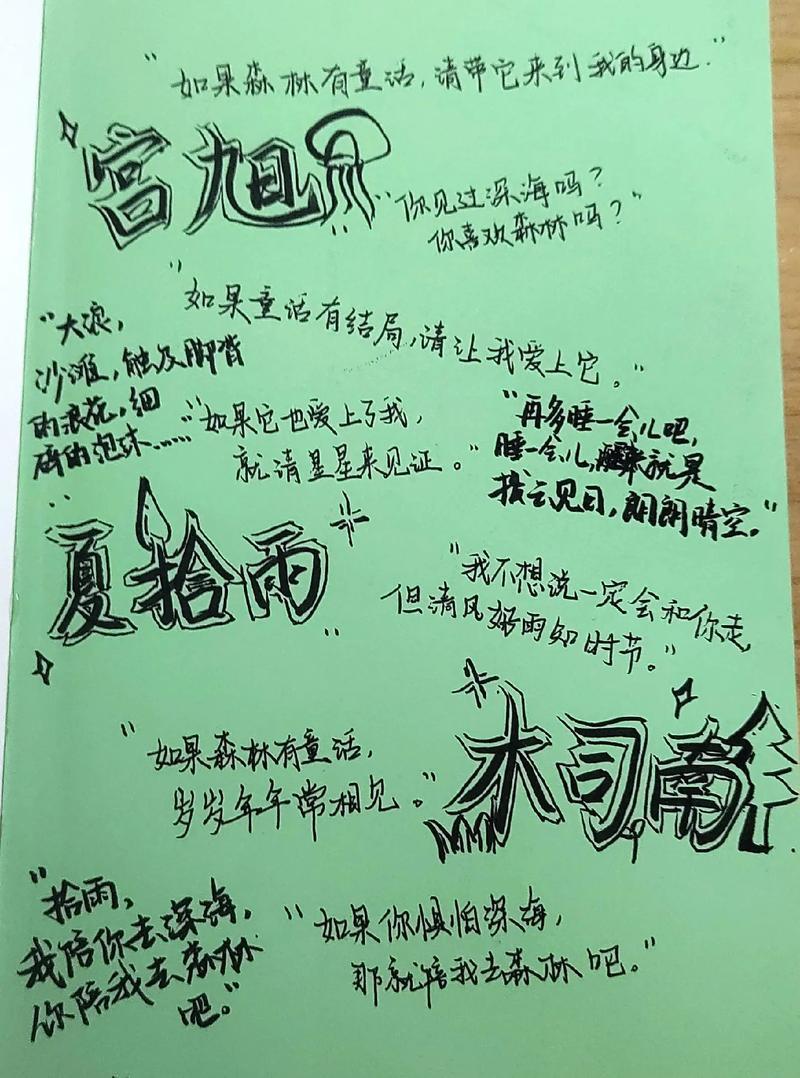 "如果森林有童话，请带它来到我的身边."
宫旭
"你见过深海吗？
你喜欢森林吗？"
"如果童话有结局，请让我爱上它。"
"大浪，
沙滩，触及脚背
的浪花，细
碎的泡沫……"
"如果它也爱上了我，
就请星星来见证。"
"再多睡一会儿吧，
睡一会儿，醒来就是
拨云见日，朗朗晴空。"
夏拾雨
"我不想说一定会和你走，
但清风好雨知时节。"
木司南
"如果森林有童话，
岁岁年年常相见。"
"拾雨，
我陪你去深海，
你陪我去森林
吧。"
"如果你惧怕深海，
那就陪我去森林吧。"